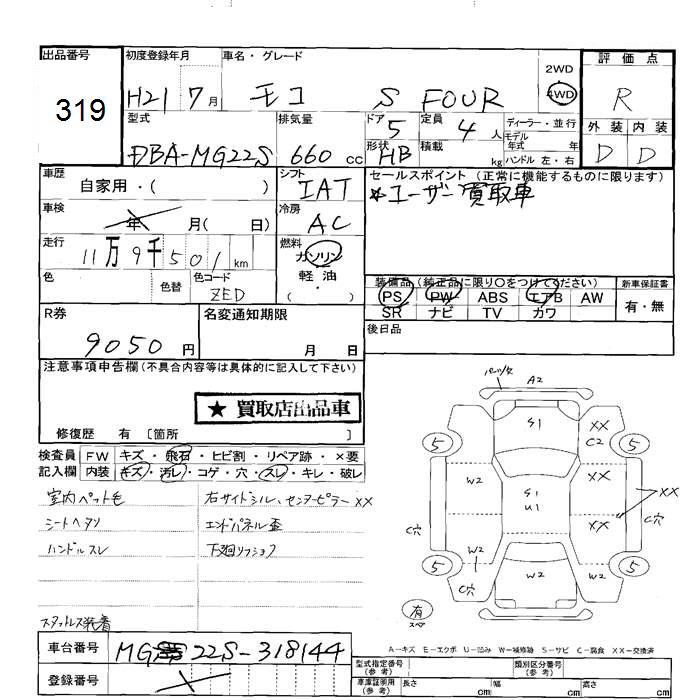 出品番号
319
初度登録年月
H21 7月
車名・グレード
モコ S FOUR
2WD
4WD
評価点
R
外装 内装
D D
型式
DBA-MG22S
排気量
660 cc
ドア
5
形状
HB
定員
4 人
積載
kg
ディーラー・並行
モデル
年式 年
ハンドル 左・右
車歴
自家用・( )
シフト
IAT
セールスポイント (正常に機能するものに限ります)
☆ユーザー買取車
車検
年 月( 日)
冷房
AC
走行
11万9千501km
燃料
ガソリン
軽油
( )
色
色替
色コード
ZED
装備品 (純正品に限り○をつけてください)
PS PW ABS エアB AW
SR ナビ TV カワ
新車保証書
有・無
R券
9050円
名変通知期限
月 日
後日品
注意事項申告欄(不具合内容等は具体的に記入して下さい)
★買取店出品車
修復歴 有 〔箇所 〕
検査員 FW キズ・飛石・ヒビ割・リペア跡・×要
記入欄 内装 キズ・汚レ・コゲ・穴・スレ・キレ・破レ
室内ペット毛
シートヘタリ
ハンドルスレ
スタットレス装着
右サイドシル、センターピラーXX
エンドパネル歪
下廻リフショク
A2
S1
XX
C2
5 5
W2
S1
U1
XX
XX
C穴 C穴
W2
1
XX
5 5
C穴
W2 W2
有
スペア
A-キズ E-エクボ U-凹み W-補修跡 S-サビ C-腐食 XX-交換済
車台番号
MG22S-318144
登録番号
型式指定番号
(参考)
類別区分番号
(参考)
車庫証明用
(参考)
長さ cm 幅 cm 高さ cm